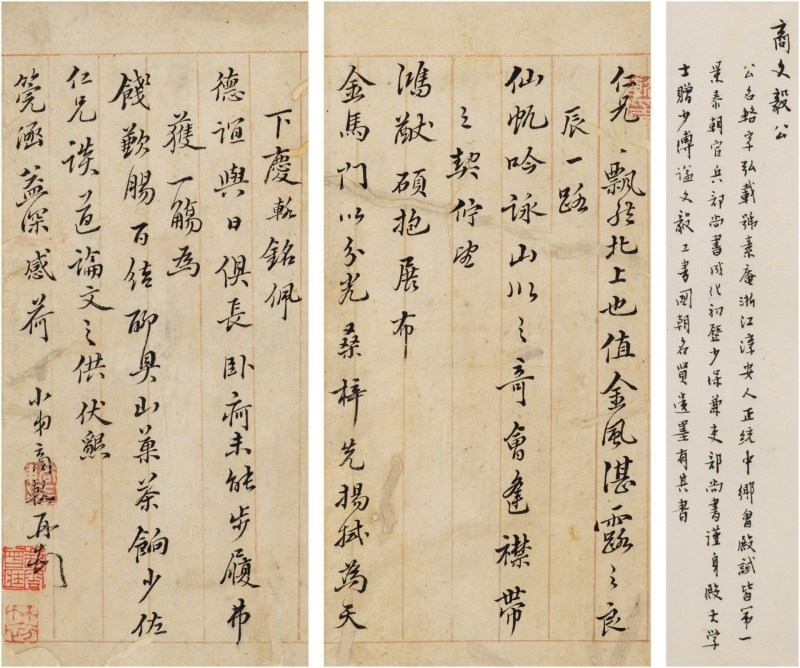 商文毅公
公名輅字弘載號素庵浙江淳安人正統中鄉會殿試皆第一
景泰朝官兵部尚書成化初歷少保兼吏部尚書謹身殿大學
士贈少傅謚文毅工書國朝名賢遺墨有其書
仁兄之飄然北上也值金風湛露之良
辰一路
仙帆吟詠山川之奇會逢襟帶
之契佇望
鴻猷碩抱展布
金馬門以分光桑梓先揚拭為天
下慶輒銘佩
德誼與日俱長卧痾未能步履弗
獲一觴為
餞歉腸百結聊具山菓茶餉少佐
仁兄談道論文之供伏懇
筦涵益深感荷 小弟商輅再